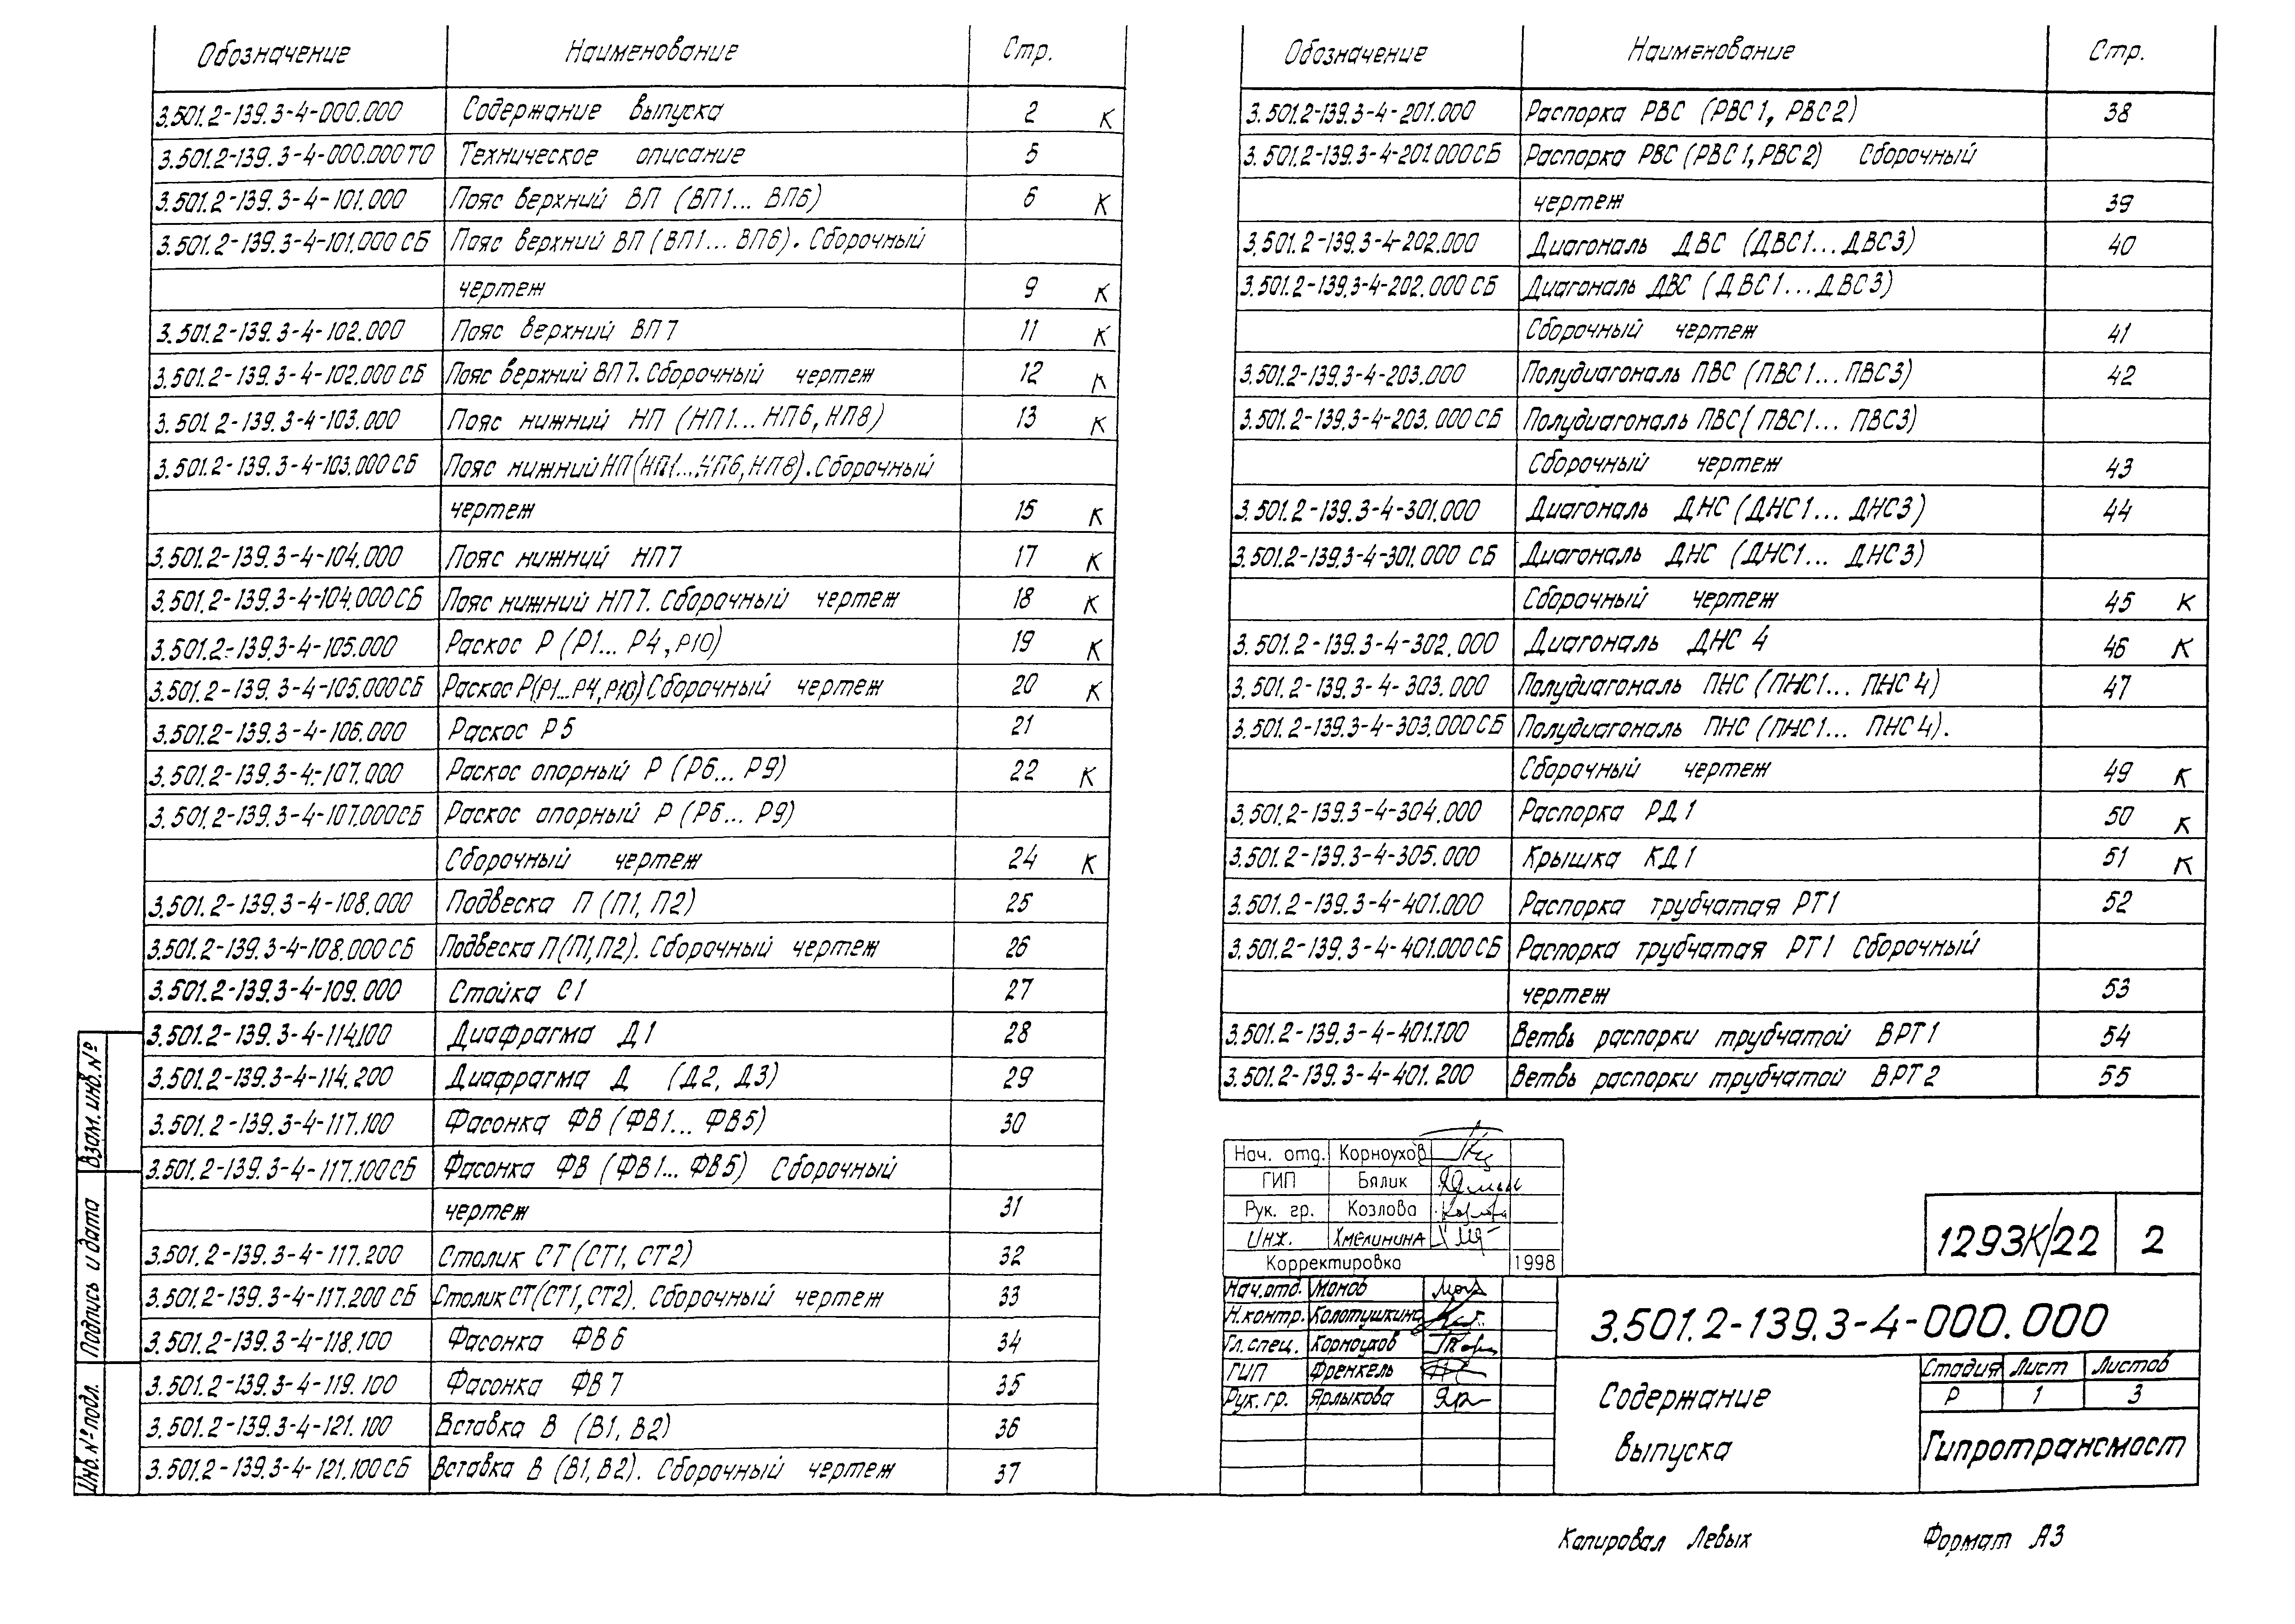 Обозначение Наименование Стр.
3.501.2-139.3-4-000.000 Содержание выпуска 2 К
3.501.2-139.3-4-000.000ТО Техническое описание 5
3.501.2-139.3-4-101.000 Пояс верхний ВП (ВП1... ВП6) 6 К
3.501.2-139.3-4-101.000 СБ Пояс верхний ВП (ВП1... ВП6). Сборочный
чертеж 9 К
3.501.2-139.3-4-102.000 Пояс верхний ВП7 11 К
3.501.2-139.3-4-102.000 СБ Пояс верхний ВП7. Сборочный чертеж 12 К
3.501.2-139.3-4-103.000 Пояс нижний НП (НП1... НП6, НП8) 13 К
3.501.2-139.3-4-103.000 СБ Пояс нижний НП(НП1...НП6, НП8). Сборочный
чертеж 15 К
3.501.2-139.3-4-104.000 Пояс нижний НП7 17 К
3.501.2-139.3-4-104.000 СБ Пояс нижний НП7. Сборочный чертеж 18 К
3.501.2-139.3-4-105.000 Раскос Р (Р1... Р4, Р10) 19 К
3.501.2-139.3-4-105.000 СБ Раскос Р(Р1...Р4, Р10) Сборочный чертеж 20 К
3.501.2-139.3-4-106.000 Раскос Р5 21
3.501.2-139.3-4-107.000 Раскос опорный Р (Р6... Р9) 22 К
3.501.2-139.3-4-107.000СБ Раскос опорный Р (Р6... Р9)
Сборочный чертеж 24 К
3.501.2-139.3-4-108.000 Подвеска П (П1, П2) 25
3.501.2-139.3-4-108.000 СБ Подвеска П(П1,П2). Сборочный чертеж 26
3.501.2-139.3-4-109.000 Стойка С1 27
3.501.2-139.3-4-114.100 Диафрагма Д1 28
3.501.2-139.3-4-114.200 Диафрагма Д (Д2, Д3) 29
3.501.2-139.3-4-117.100 Фасонка ФВ (ФВ1... ФВ5) 30
3.501.2-139.3-4-117.100СБ Фасонка ФВ (ФВ1... ФВ5) Сборочный
чертеж 31
3.501.2-139.3-4-117.200 Столик СТ (СТ1, СТ2) 32
3.501.2-139.3-4-117.200 СБ Столик СТ(СТ1, СТ2). Сборочный чертеж 33
3.501.2-139.3-4-118.100 Фасонка ФВ6 34
3.501.2-139.3-4-119.100 Фасонка ФВ7 35
3.501.2-139.3-4-121.100 Вставка В (В1, В2) 36
3.501.2-139.3-4-121.100 СБ Вставка В (В1, В2). Сборочный чертеж 37
Взам. инв. №
Подпись и дата
Инв. № подл.
Обозначение Наименование Стр.
3.501.2-139.3-4-201.000 Распорка РВС (РВС1, РВС2) 38
3.501.2-139.3-4-201.000СБ Распорка РВС (РВС1, РВС2) Сборочный
чертеж 39
3.501.2-139.3-4-202.000 Диагональ ДВС (ДВС1... ДВС3) 40
3.501.2-139.3-4-202.000 СБ Диагональ ДВС (ДВС1... ДВС3)
Сборочный чертеж 41
3.501.2-139.3-4-203.000 Полудиагональ ПВС (ПВС1... ПВС3) 42
3.501.2-139.3-4-203.000 СБ Полудиагональ ПВС( ПВС1... ПВС3)
Сборочный чертеж 43
3.501.2-139.3-4-301.000 Диагональ ДНС (ДНС1... ДНС3) 44
3.501.2-139.3-4-301.000 СБ Диагональ ДНС (ДНС1... ДНС3)
Сборочный чертеж 45 К
3.501.2-139.3-4-302.000 Диагональ ДНС 4 46 К
3.501.2-139.3-4-303.000 Полудиагональ ПНС (ПНС1... ПНС 4) 47
3.501.2-139.3-4-303.000 СБ Полудиагональ ПНС (ПНС1... ПНС 4).
Сборочный чертеж 49 К
3.501.2-139.3-4-304.000 Распорка РД1 50 К
3.501.2-139.3-4-305.000 Крышка КД1 51 К
3.501.2-139.3-4-401.000 Распорка трубчатая РТ1 52
3.501.2-139.3-4-401.000 СБ Распорка трубчатая РТ1 Сборочный
чертеж 53
3.501.2-139.3-4-401.100 Ветвь распорки трубчатой ВРТ1 54
3.501.2-139.3-4-401.200 Ветвь распорки трубчатой ВРТ2 55
Нач. отд. Корноухов
ГИП Бялик
Рук. гр. Козлова
Инж. Хмелинина
Корректировка 1998
Нач.отд. Монов
Н.контр. Колотушкина
Гл.спец. Корноухов
ГИП Френкель
Рук. гр. Ярлыкова
1293К/22 2
3.501.2-139.3-4-000.000
Содержание
выпуска
Стадия Лист Листов
Р 1 3
Гипротрансмост
Копировал Левых Формат А3